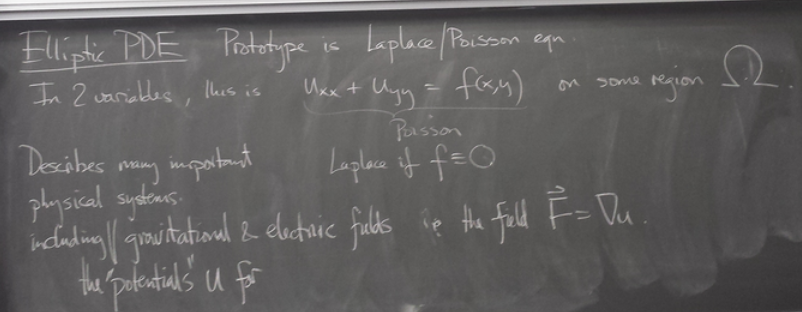 Elliptic PDE Prototype is Laplace/Poisson eqn.
In 2 variables, this is uxx + uyy = f(x,y) on some region Ω.
Poisson
Describes many important Laplace if f≡0
physical systems.
including || gravitational & electric fields ie the field F⃗ = ∇u.
the "potentials" u for